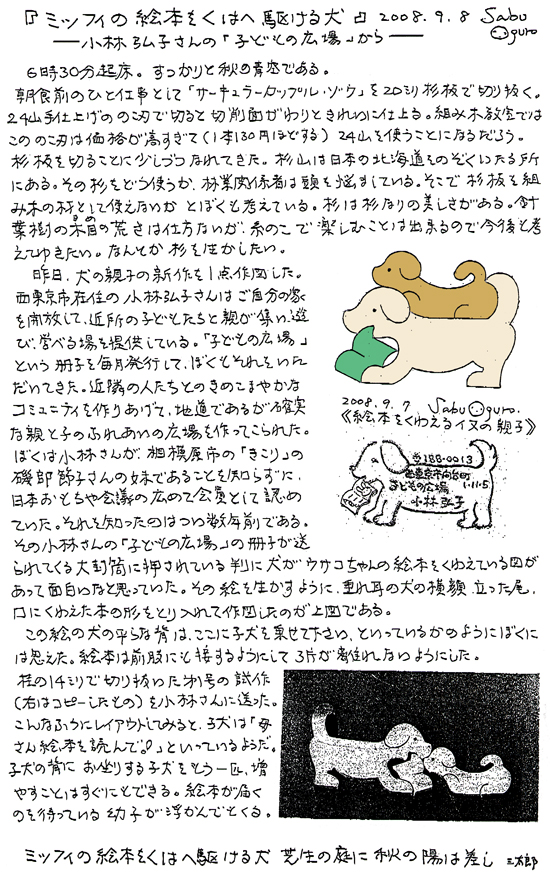 『ミッフィの絵本をくはへ駆ける犬』2008.9.8 Sabu Oguro
―小林弘子さんの「子どもの広場」から―
6時30分起床。すっかりと秋の青空である。
朝食前のひと仕事として「サーキュラーカップル・ゾウ」を20ミリ杉板で切り抜く。
24山手仕上げののこ刃で切ると切削面がわりときれいに仕上る。組み木教室では
このの刃は価格が高すぎて(1本130円ほどする)24山を使うことになるだろう。
杉板を切ることに少しづつなれてきた。杉山は日本の北海道をのぞくいたる所
にある。その杉をどう使うか、林業関係者は頭を悩ましている。そこで杉板を組
み木の材として使えないかとぼくも考えている。杉は杉なりの美しさがある。針
葉樹の木目の荒さは仕方ないが、糸のこで楽しむことは出来るので今後も考
えてゆきたい。なんとか杉を生かしたい。
昨日、犬の親子の新作を1点作図した。
西東京市在住の小林弘子さんはご自分の家
を開放して、近所の子どもたちと親が集い遊
び、学べる場を提供している。「子どもの広場」
という冊子を毎月発行して、ぼくもそれをいた
だいてきた。近隣の人たちとのきめこまやかな
コミュニティを作りあげて、地道であるが確実
な親と子のふれあいの広場を作ってこられた。
ぼくは小林さんが、相模原市の「きこり」の
磯部節子さんの妹であることを知らずに、
日本おもちゃ会議の広めて会員として認め
ていた。それを知ったのはつい数年前である。
その小林さんの「子どもの広場」の冊子が送
られてくる大封筒に押されている判に犬がウサコちゃんの絵本をくわえている図が
あって面白いなと思っていた。その絵を生かすように、垂れ耳の犬の横顔、立った尾、
口にくわえた本の形をとり入れて作図したのが上図である。
2008.9.7 Sabu Oguro.
《絵本をくわえるイヌの親子》
〒188-0013
西東京市向台町
1-11-5
子どもの広場
小林弘子
この絵の犬の平らな背は、ここに子犬を乗せて下さい、といっているかのようにぼくに
は思えた。絵本は前股にも接するようにして3片が離れないようにした。
桂の14ミリで切り抜いた初号の試作
(右はコピーしたもの)を小林さんに送った。
こんなふうにレイアウトしてみると、子犬は「母
さん絵本を読んで。」といっているようだ。
子犬の背にお坐りする子犬をもう一匹、増
やすことはすぐにもできる。絵本が届く
のを待っている幼子が浮かんでもくる。
ミッフィの絵本をくはへ駆ける犬 芝生の庭に秋の陽は差し 三太郎